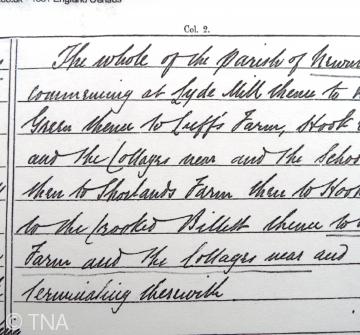 1881 England Census
Col. 2.
The whole of the Parish of Newn
commencing at Lyde Mill thence to
Green thence to Luff's Farm, Hook
and the Cottages near and the Schoo
then to Shorlands Farm then to Hook
to the Crooked Billett thence to
Farm and the Cottages near and
terminating therewith
© TNA